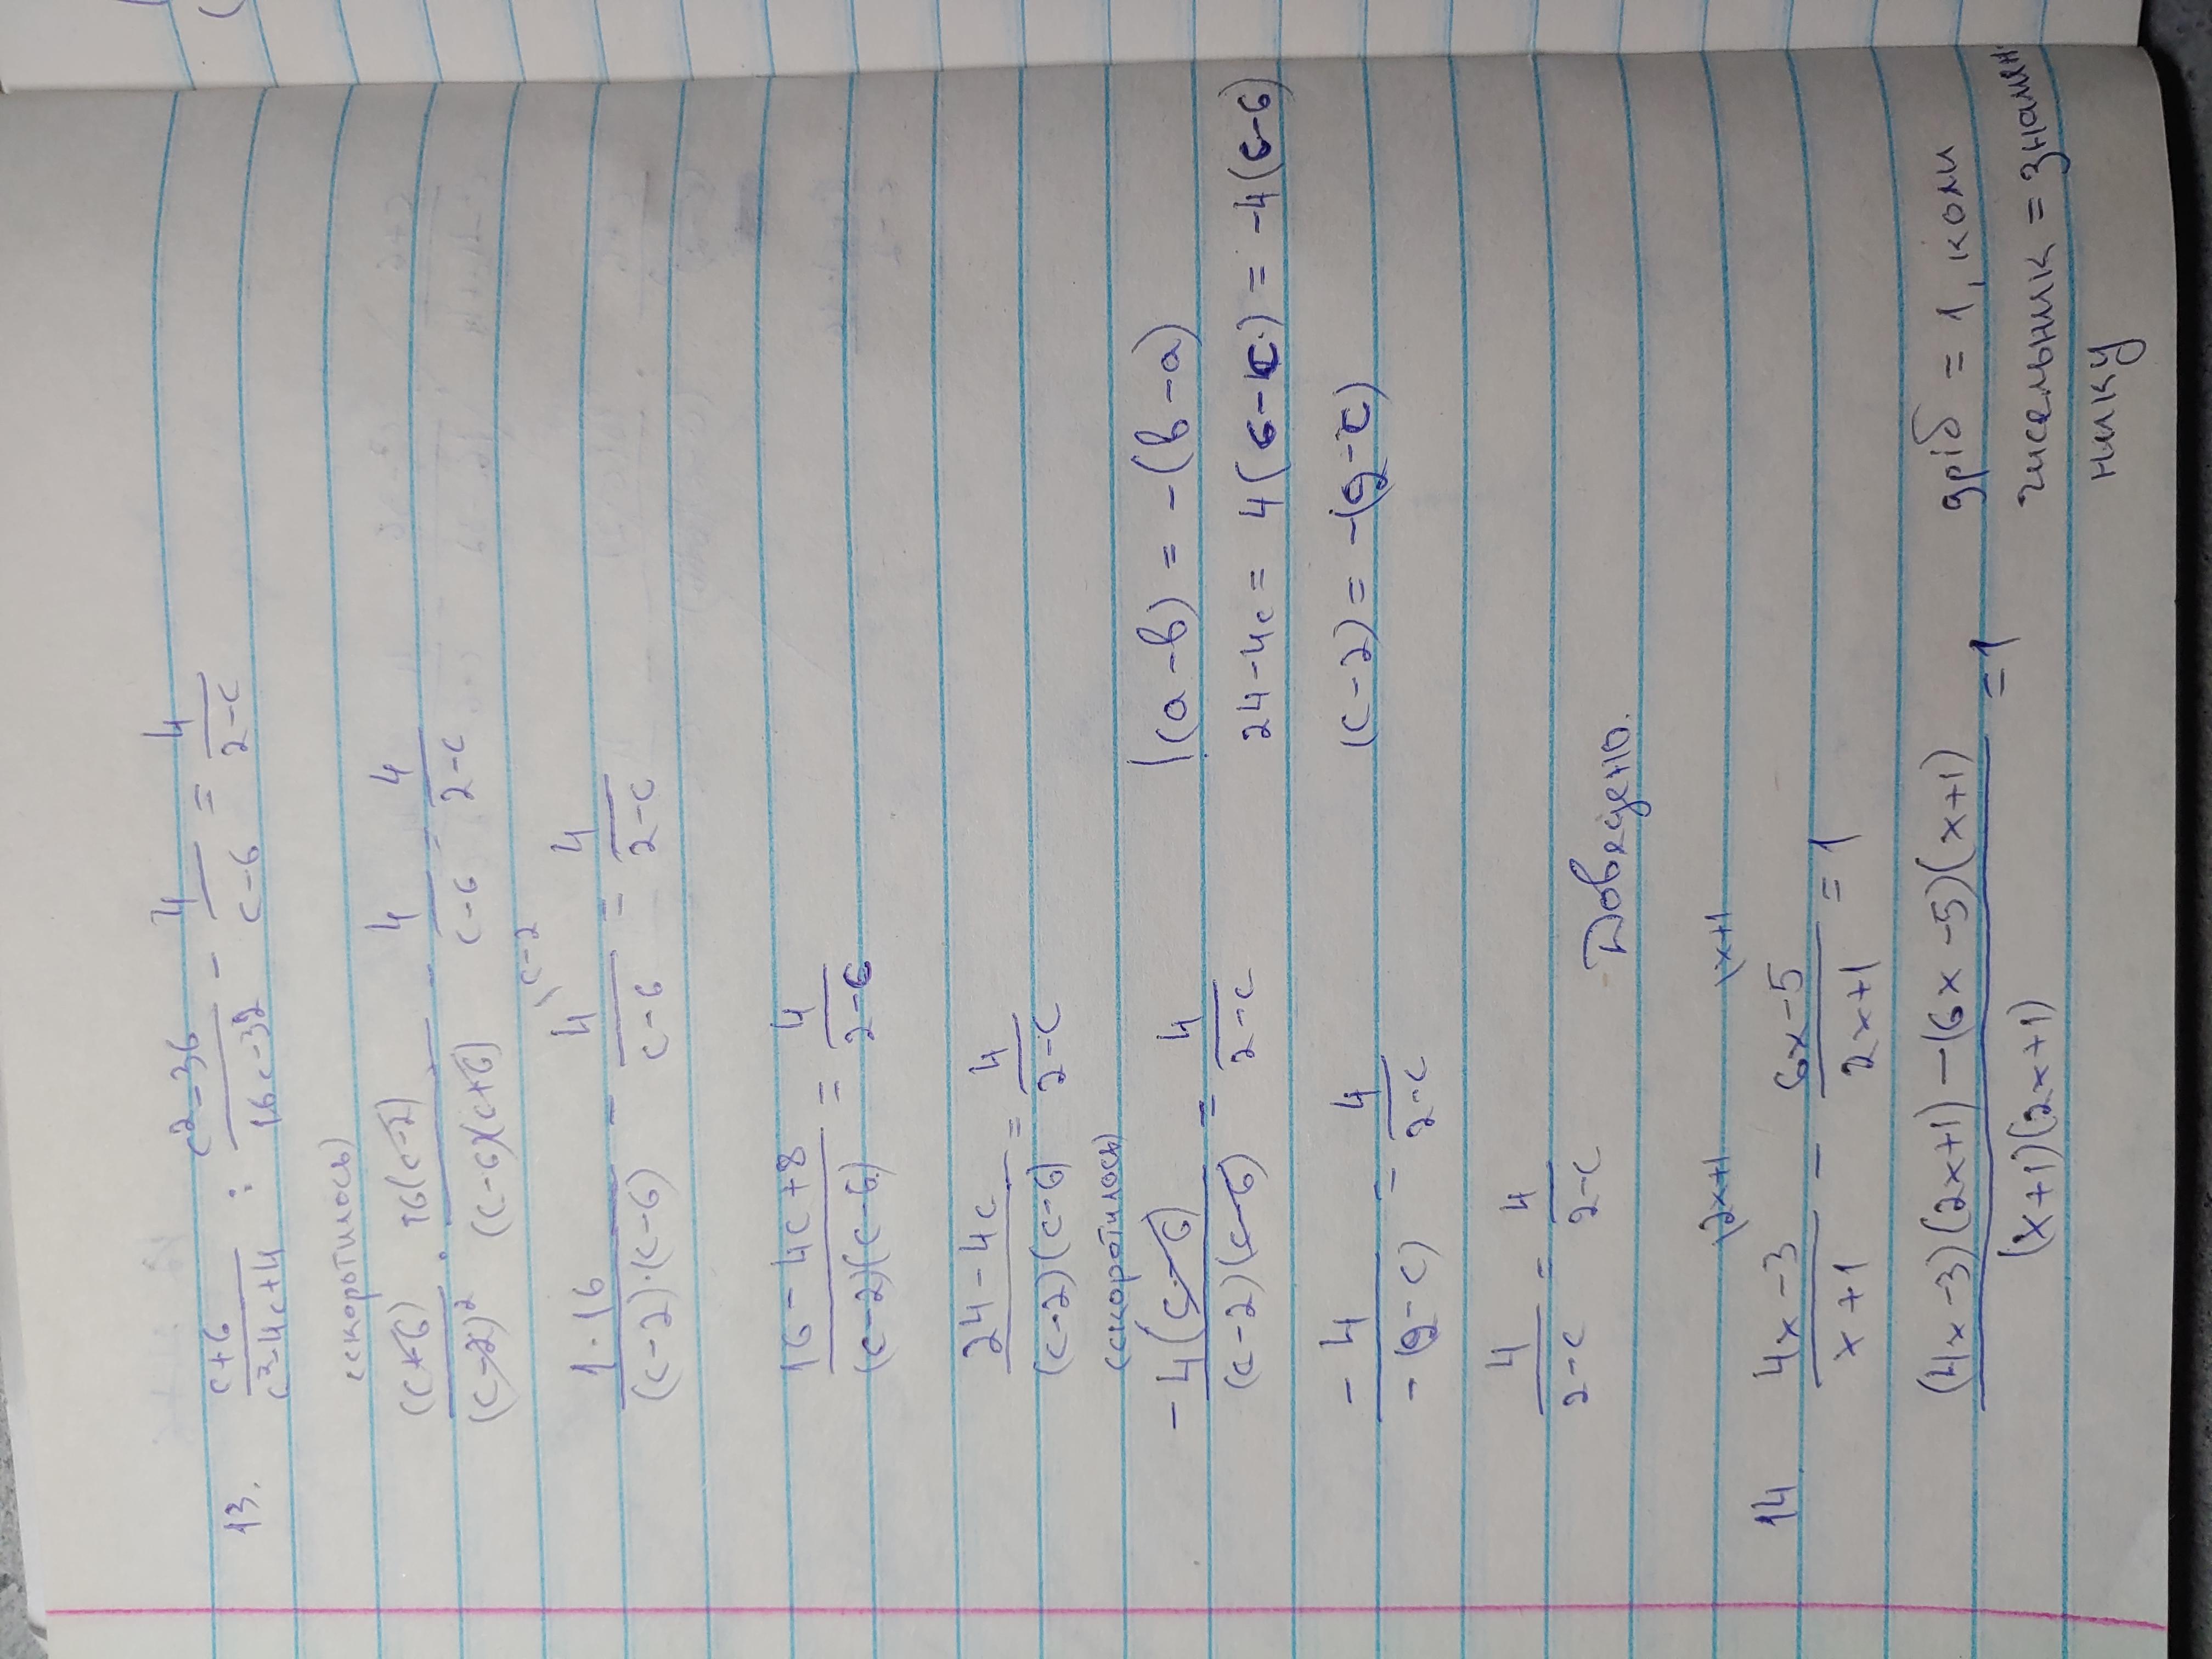 13. (c+6)/(c²-4c+4) : (c²-36)/(16c-32) - 4/(c-6) = 4/(2-c)
(скоротилось)
(c+6)/(c-2)² · 16(c-2)/((c-6)(c+6)) - 4/(c-6) = 4/(2-c)
(1·16)/((c-2)·(c-6)) - 4\c-2/(c-6) = 4/(2-c)
(16-4c+8)/((c-2)(c-6)) = 4/(2-c)
(24-4c)/((c-2)(c-6)) = 4/(2-c)
(скоротилось)
-4(c-6)/((c-2)(c-6)) = 4/(2-c) |(a-b) = -(b-a)
24-4c = 4(6-c) = -4(c-6)
-4/(-(2-c)) = 4/(2-c) (c-2) = -(2-c)
4/(2-c) = 4/(2-c)
Доведено.
14. (4x-3)\2x+1/(x+1) - (6x-5)\x+1/(2x+1) = 1
((4x-3)(2x+1)-(6x-5)(x+1))/((x+1)(2x+1)) = 1 дріб = 1, коли
чисельник = знамен
нику